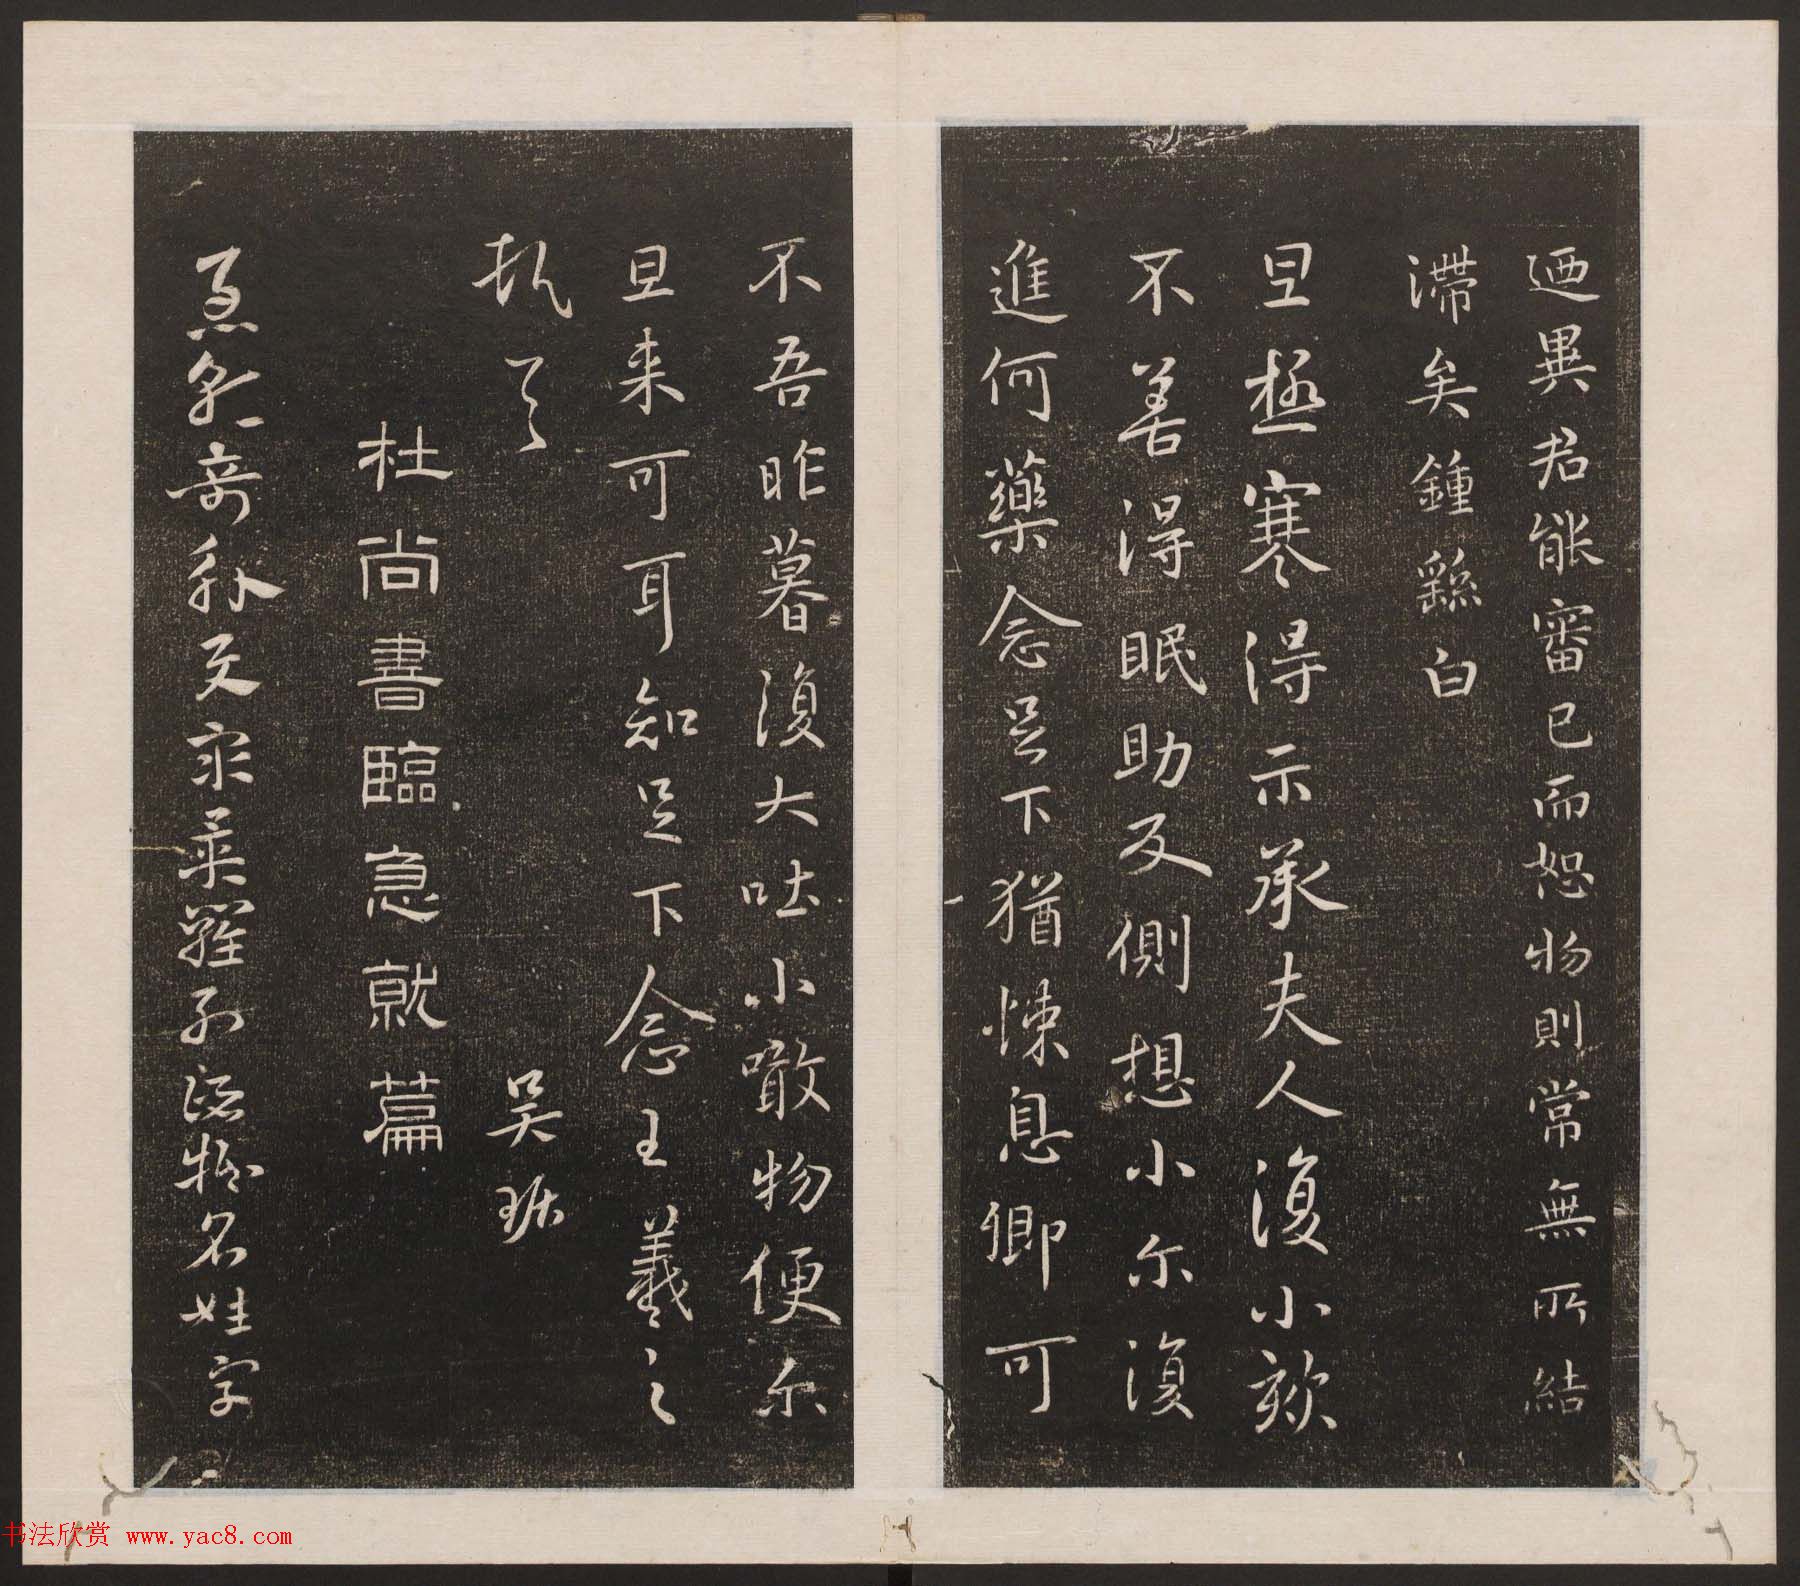 迺異君能審己而恕物則常無所結
滯矣鍾繇白
旦極寒得示承夫人復小欬
不善得眠助反側想小尒復
進何藥念足下猶悚息卿可
不吾昨暮復大吐小噉物便尒
旦来可耳知足下念王羲之
頓首
吳琚
杜尚書臨急就篇
急就奇觚与衆異羅列諸物名姓字
书法欣赏 www.yac8.com